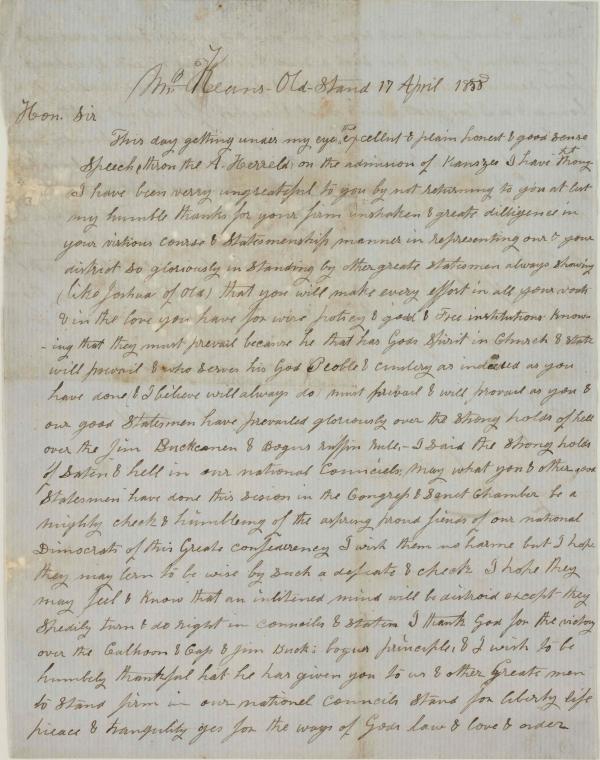 Mrs Keans Old Stand 17 April 1858
Hon. Sir
This day getting under my eye, the Excellent & plain honest & good sense
Speech, thron the A. Herreld, on the admission of Kanszes I have thoug
I have been verry ungreateful to you by not returning to you at last
my humble thanks for your firm unshaken & greate dilligence in
your virtious course & Statesmenship manner in representing our & your
district so gloriously in standing by other greate statesmen always showing
(like Joshua of old) that you will make every effort in all your works
& in the love you have for wise policy & good & Free institutions know-
-ing that they must prevail because he that has Gods Spirit in Church & State
will prevail & who serves his God Peoble & cuntery as indeed as you
have done & I believe will always do must prevail & will provail as you &
our good Statesmen have prevailed gloriously over the Strong holds of hell
over the Jim Buckcanen & Bogus ruffin rule, - I Said the Strong holds
of Saten & hell in our national Councials, may what you & other good
Statesmen have done this Session in the Congress & Senet Chamber be a
mighty check & humbleing of the aspring proud fiends of our national
Dimocrats of this Greate confeaurency I wish them no harme but I hope
they may lern to be wise by Such a defeate & check I hope they
may feel & know that an inlitened mind will be distroid except they
Spedily turn & do right in councils & station I thank God for the victory
over the Calhoon & Cap & Jim Buck: bogus principle, & I wish to be
humbely thankful hat he has given you to us & other Greate men
to Stand firm in our national councils Stand for liberty life
pieace & tranquility yes for the ways of Gods law & love & order